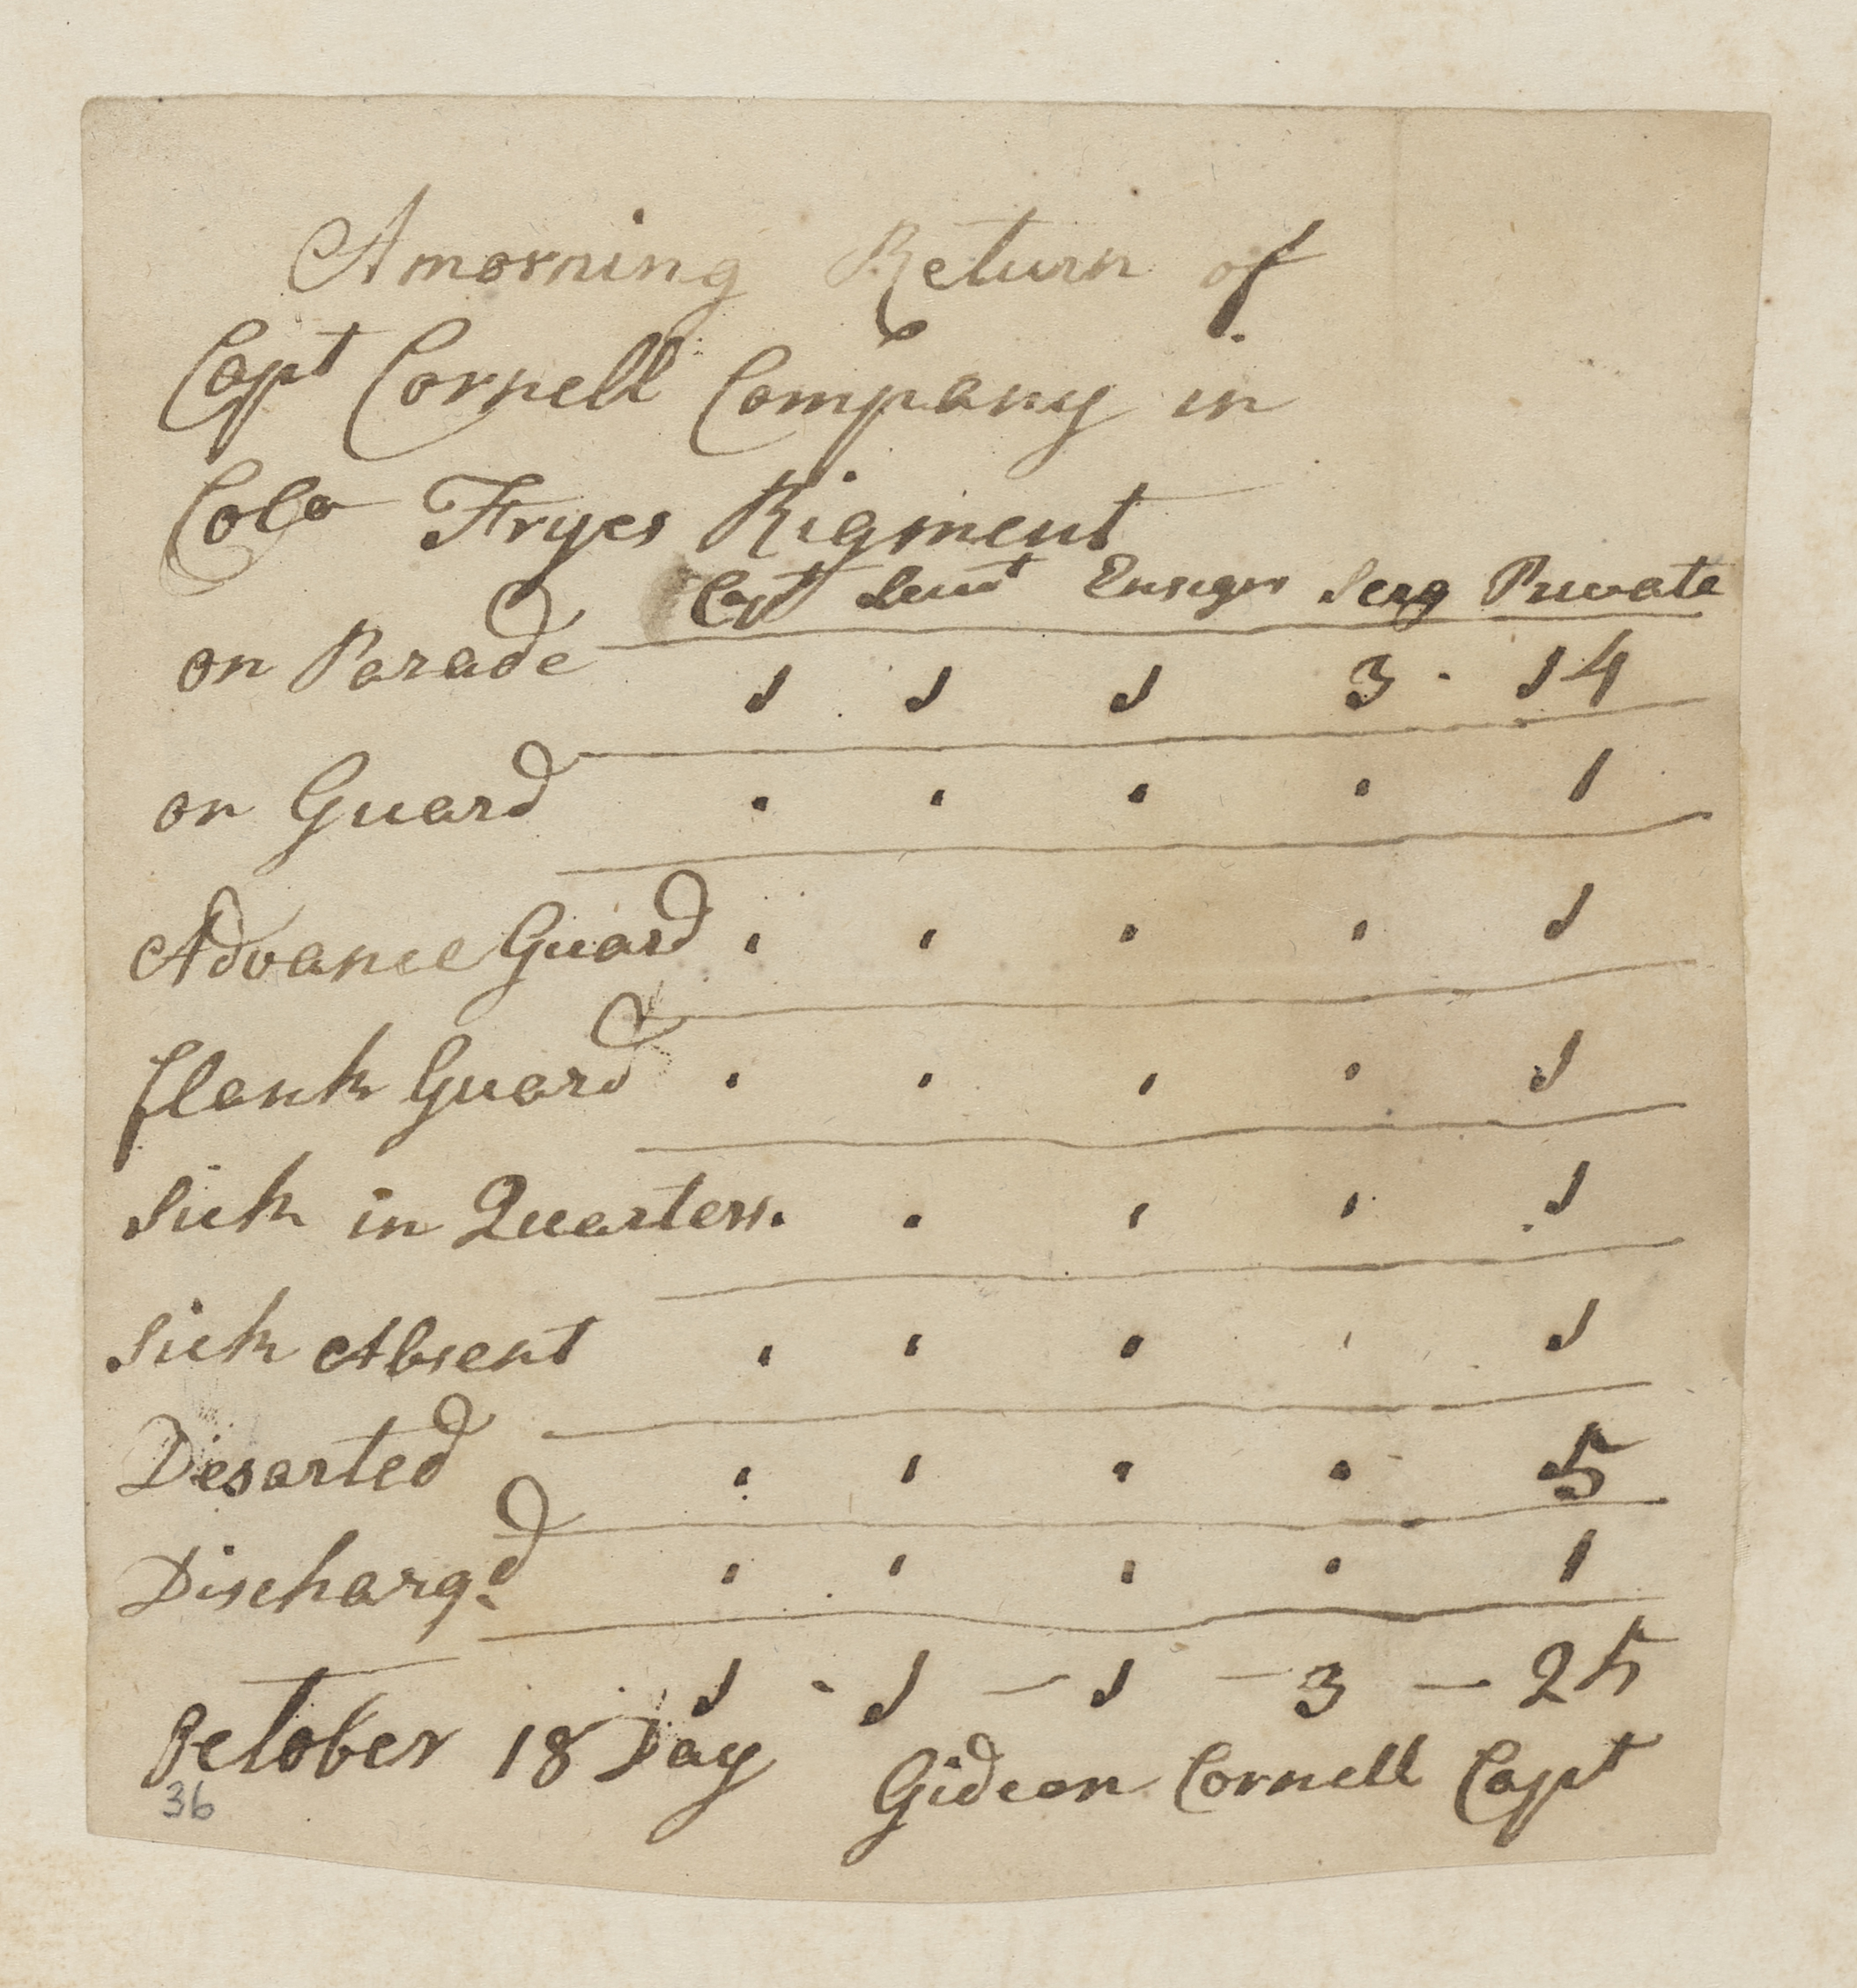 A morning Return of
Capt Cornell Company in
Colo Fryes Rigment
Capt Leut Ensign Serg Private
on Parade 1 1 1 3 · 14
on Guard · · · · 1
Advance Guard · · · · 1
flank Guard · · · · 1
Sick in Quarters · · · · 1
Sick Absent · · · · 1
Desarted · · · · 5
Discharg.d · · · · 1
1 - 1 — 1 — 3 — 25
October 18 Day Gideon Cornell Capt
36